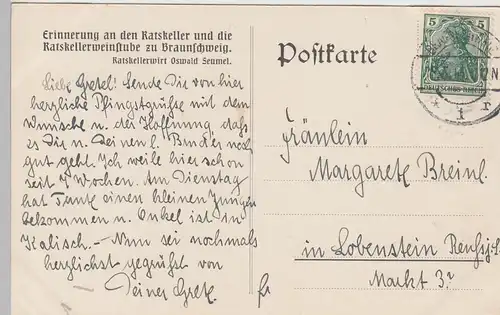 Erinnerung an den Ratskeller und die
Ratskellerweinstube zu Braunschweig.
Ratskellerwirt Oswald Seumel.
Postkarte
5 5
DEUTSCHES REICH
* 1 r
Liebe Gretel! Sende Dir von hier
herzliche Pfingstgrüße mit dem
Wunsche u. der Hoffnung, daß
es Dir u. Deinen l. Bruder noch
gut geht. Ich weile hier schon
seit 7 Wochen. Am Dienstag
hat Tante einen kleinen Jungen
bekommen u. Onkel ist in
Kalisch. – Nun sei nochmals
herzlichst gegrüßt von
Deiner Grete.
Fräulein
Margarete Breinl.
in Lobenstein
Markt 3.